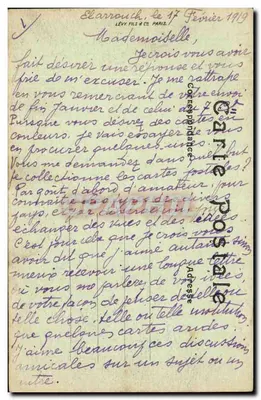 Elarrouch, le 17 Février 1919
LÉVY FILS & Cie PARIS
Mademoiselle,
Je crois vous avoir
fait désirer une réponse et vous
prie de m'excuser. Je me rattrape
en vous remerciant de votre envoi
de fin Janvier et de celui du 7
Puisque vous désirez des cartes en
couleurs, je vais essayer de vous
en procurer quelques-unes.
Vous me demandez dans quel but
je collectionne les cartes postales ?
Par goût d'abord d'amateur, pour
connaître
pays, et
échanger des vues et des idées.
C'est pour cela que je crois vous
avoir dit que j'aime autant sinon
mieux recevoir une longue lettre
où vous me parlerez de vos idées
de votre façon de penser de telle ou
telle chose, telle ou telle institution
que quelques cartes arides.
J'aime beaucoup ces discussions
amicales sur un sujet ou un
autre.
Carte postale
Correspondance